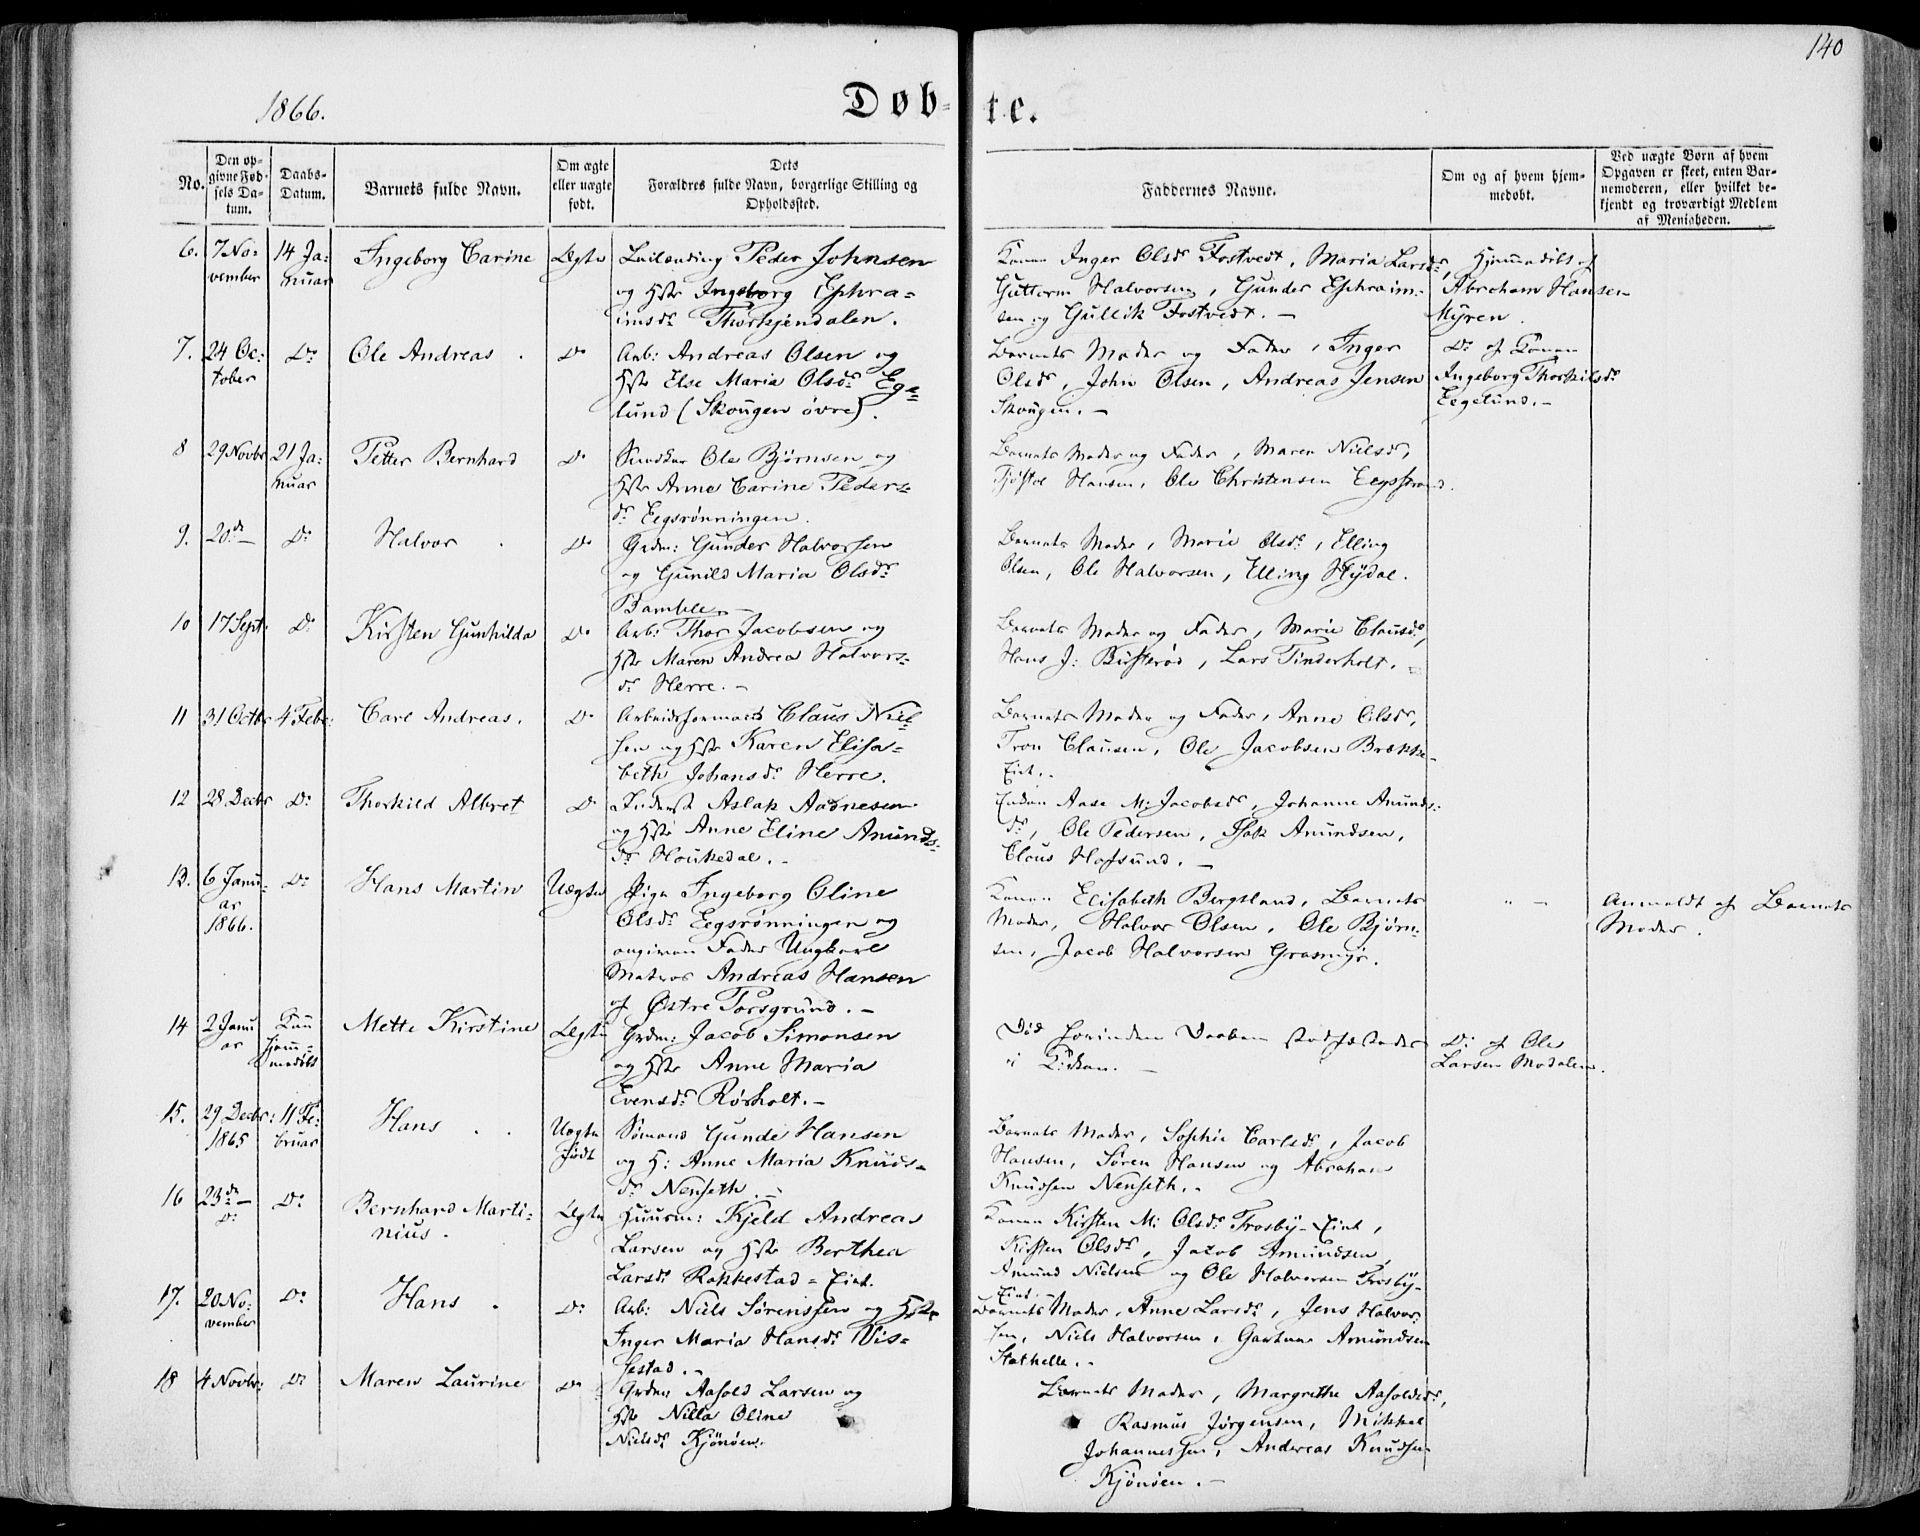 140
1866.
Døb-te.
No.
Den op-
givne Fød-
sels Da-
tum.
Daabs-
Datum.
Barnets fulde Navn.
Om ægte
eller uægte
født.
Dets
Forældres fulde Navn, borgerlige Stilling og
Opholdssted.
Faddernes Navne.
Om og af hvem hjem-
medøbt.
Ved uægte Børn af hvem
Opgaven er skeet, enten Bar-
nemoderen, eller hvilket be-
kjendt og troværdigt Medlem
af Menigheden.
6.
7 No-
vember
14 Ja-
nuar
Ingeborg Carine
Ægte
Leilending Peder Johnsen
og Hstr Ingeborg Ephra-
imsdr Thorkjendalen.
Konen Inger Olsdr Fostvedt, Maria Larsdr,
Guttorm Halvorsen, Gunder Ephraim-
sen og Gullik Fostvedt. -
Hjemmedøbt af
Abraham Hansen
Myren.
7.
24 Oc:
tober
Do
Ole Andreas.
Do
Arb: Andreas Olsen og
Hstr Else Maria Olsdr Ege-
lund (Skougen øvre).
Barnets Moder og Fader, Inger
Olsdr, John Olsen, Andreas Jensen
Skougen. -
Do af Konen
Ingeborg Thorkilsdr
Eegelund. -
8
29 Novbr
21 Ja-
nuar
Petter Bernhard
Do
Ole Bjørnsen og
Hstr Anne Carine Peders-
dr Eegsrønningen.
Barnets Moder og Fader, Maren Nielsdr,
Tjøstol Hansen, Ole Christensen Eegsstrand.
9.
20de -
Do
Halvor.
Do
Grdm: Gunder Halvorsen
og Gunild Maria Olsdr
Bamble. -
Barnets Moder, Marie Olsdr, Elling
Olsen, Ole Halvorsen, Elling Nydal.
10
17 Sept:
Do
Kirsten Gunhilda
Do
Arb: Thor Jacobsen og
Hstr Maren Andrea Halvors-
dr Herre. -
Barnets Moder og Fader, Marie Clausdr,
Hans J: Busterød, Lars Tinderholt. -
11
31 Octbr
4 Febr:
Carl Andreas.
Do
Arbeidsformand Claus Niel-
sen og Hstr Karen Elisa-
beth Johansdr Herre.
Barnets Moder og Fader, Anne Olsdr,
Tron Clausen, Ole Jacobsen Brække-
Eiet. -
12
28 Decbr
Do
Thorkild Albret
Do
Inderst Aslak Aadnesen
og Hstr Anne Eline Amunds-
dr Houkedal. -
Enken Aase M: Jacobsdr, Johanne Amunds-
dr, Ole Pedersen, Isak Amundsen,
Claus Hafsund. -
13.
6 Janu-
ar
1866.
Do
Hans Martin
Uægte
Pige Ingeborg Oline
Olsdr Eegsrønningen og
angiven Fader Ungkarl
Matros Andreas Hansen
af Østre Porsgrund. -
Konen Elisabeth Bergsland, Barnets
Moder, Halvor Olsen, Ole Bjørn-
sen, Jacob Halvorsen Grasmyr.
" -
Anmeldt af Barnets
Moder.
14
2 Janu
ar
Kun
hjem-
medøbt
Mette Kirstine
Ægte
Grdm: Jacob Simonsen
og Hstr Anne Maria
Evensdr Rørholt. -
Død forinden Daaben stadfæstedes
i Kirken. -
Do af Ole
Larsen Modalen.
15.
29 Decbr:
1865
11 Fe-
bruar
Hans . .
Uægte
født
Sømand Gunde Hansen
og H: Anne Maria Knuds-
dr Nenseth. -
Barnets Moder, Sophie Carlsdr, Jacob
Hansen, Søren Hansen og Abraham
Knudsen Nenseth. -
16
23de -
Do
Do
Bernhard Marti-
nius.
Ægte
Huusm: Kjeld Andreas
Larsen og Hstr Berthea
Larsdr Rakkestad-Eiet.
Konen Kirsten M: Olsdr Trosby-Eiet,
Kirsten Olsdr, Jacob Amundsen,
Amund Nielsen og Ole Halvorsen Trosby-
Eiet. -
17.
20 No-
vember
Do
Hans .
Do
Arb: Niels Sørenssen og Hstr
Inger Maria Hansdr Vis-
sestad. -
Barnets Moder, Anne Larsdr, Jens Halvor-
sen, Niels Halvorsen, Amundsen
Stathelle. -
18
4 Novbr:
Do
Maren Laurine
Do
Grdm Aasold Larsen og
Hstr Nilla Oline
Nielsdr Kjønøen.
Barnets Moder, Margrethe Aasoldsdr,
Rasmus Jørgensen, Mikkel
Johannessen, Andreas Knudsen
Kjønøen. -